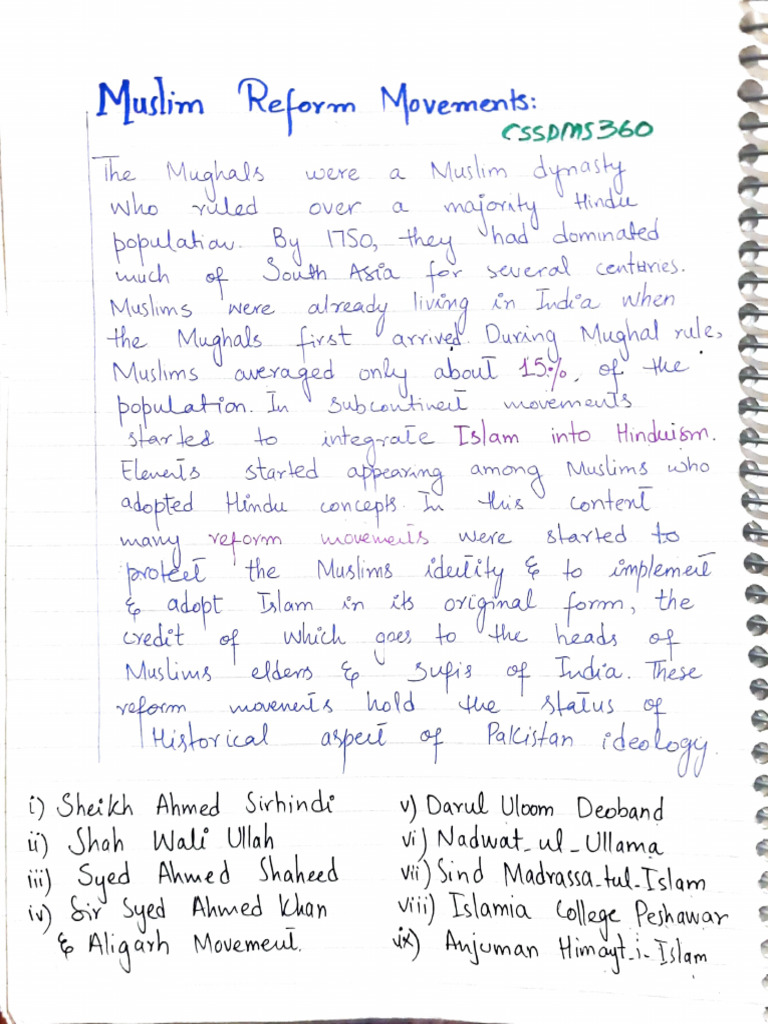 Muslim Reform Movements:
CSSDMS360
The Mughals were a Muslim dynasty
who ruled over a majority Hindu
population. By 1750, they had dominated
much of South Asia for several centuries.
Muslims were already living in India when
the Mughals first arrived. During Mughal rule,
Muslims averaged only about 15%, of the
population. In subcontinent movements
started to integrate Islam into Hinduism.
Elements started appearing among Muslims who
adopted Hindu concepts. In this content
many reform movements were started to
protect the Muslims identity & to implement
& adopt Islam in its original form, the
credit of which goes to the heads of
Muslims elders & sufis of India. These
reform movements hold the status of
Historical aspect of Pakistan ideology.
i) Sheikh Ahmed Sirhindi
ii) Shah Wali Ullah
iii) Syed Ahmed Shaheed
iv) Sir Syed Ahmed Khan
& Aligarh Movement.
v) Darul Uloom Deoband
vi) Nadwat-ul-Ullama
vii) Sind Madrassa-tul-Islam
viii) Islamia College Peshawar
ix) Anjuman Himayt-i-Islam